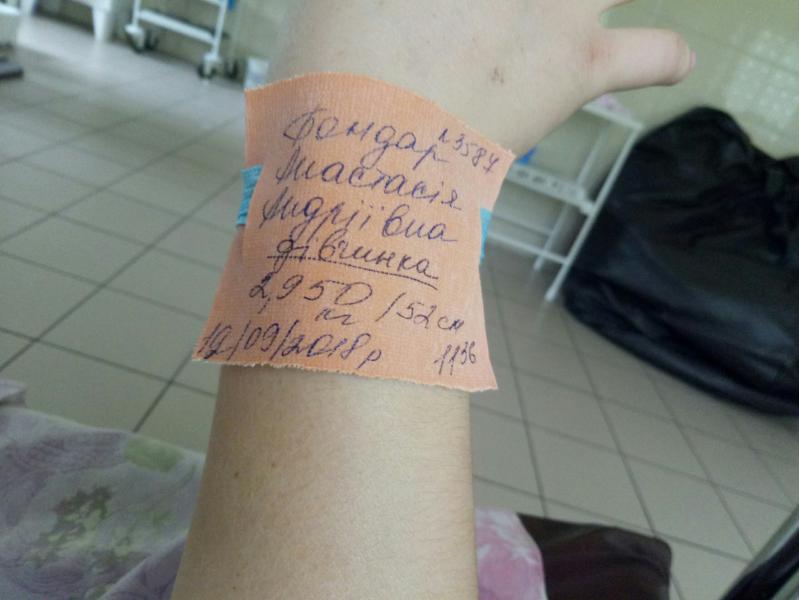 Бондар №3587
Анастасія
Андріївна
дівчинка
2,950 / 52 см
кг
12/09/2018 р 1136